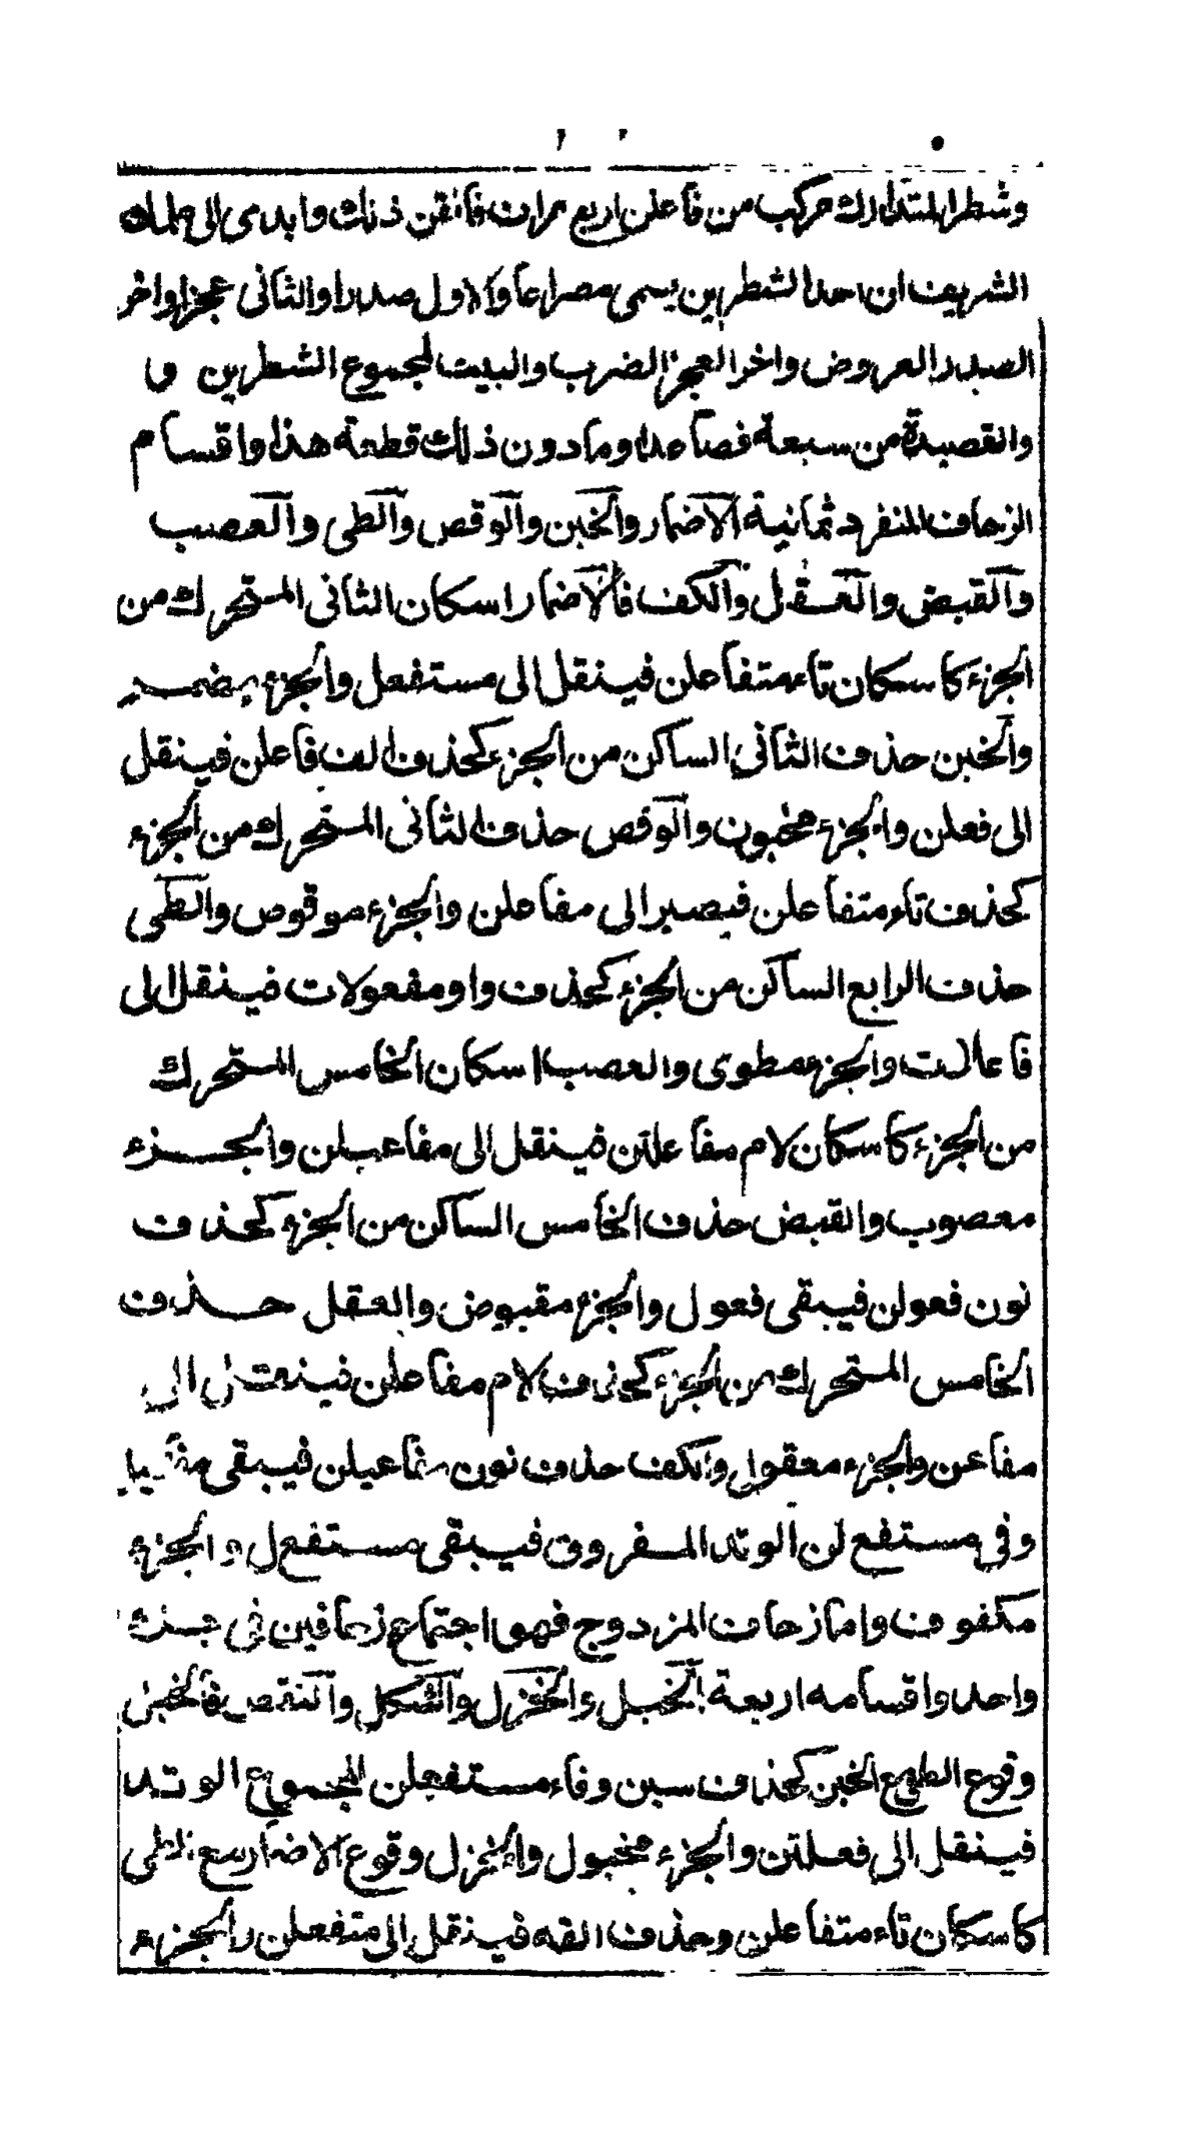 وشطر المتدارك مركب من فاعلن اربع مرات فاتقن ذلك وابدى الى علمك
الشريف ان احد الشطرين يسمى مصراعا والاول صدرا والثانى عجزا واخر
الصدر العروض واخر العجز الضرب والبيت لمجموع الشطرين
والقصيدة من سبعة فصاعدا وما دون ذلك قطعة هذا واقسام
الزحاف المنفرد ثمانية الاضمار والخبن والوقص والطى والعصب
والقبض والعقل والكف فالاضمار اسكان الثانى المتحرك من
الجزء كاسكان تاء متفاعلن فينقل الى مستفعل والجزء مضمر
والخبن حذف الثانى الساكن من الجزء كحذف الف فاعلن فينقل
الى فعلن والجزء مخبون والوقص حذف الثانى المتحرك من الجزء
كحذف تاء متفاعلن فيصير الى مفاعلن والجزء موقوص والطى
حذف الرابع الساكن من الجزء كحذف واو مفعولات فينقل الى
فاعلات والجزء مطوى والعصب اسكان الخامس المتحرك
من الجزء كاسكان لام مفاعلتن فينقل الى مفاعيلن والجزء
معصوب والقبض حذف الخامس الساكن من الجزء كحذف
نون فعولن فيبقى فعول والجزء مقبوض والعقل حذف
الخامس المتحرك من الجزء كحذف لام مفاعلتن فينقل الى
مفاعن والجزء معقول والكف حذف نون مفاعيلن فيبقى مفاعيل
وفى مستفع لن الوتد المفروق فيبقى مستفع ل والجزء
مكفوف واما زحاف المزدوج فهو اجتماع زحافين فى جزء
واحد واقسامه اربعة الخبل والخزل والشكل والنقص فالخبل
وقوع الطى مع الخبن كحذف سين وفاء مستفعلن المجموع الوتد
فينقل الى فعلتن والجزء مخبول والخزل وقوع الاضمار مع الطى
كاسكان تاء متفاعلن وحذف الفه فينقل الى متفعلن والجزء